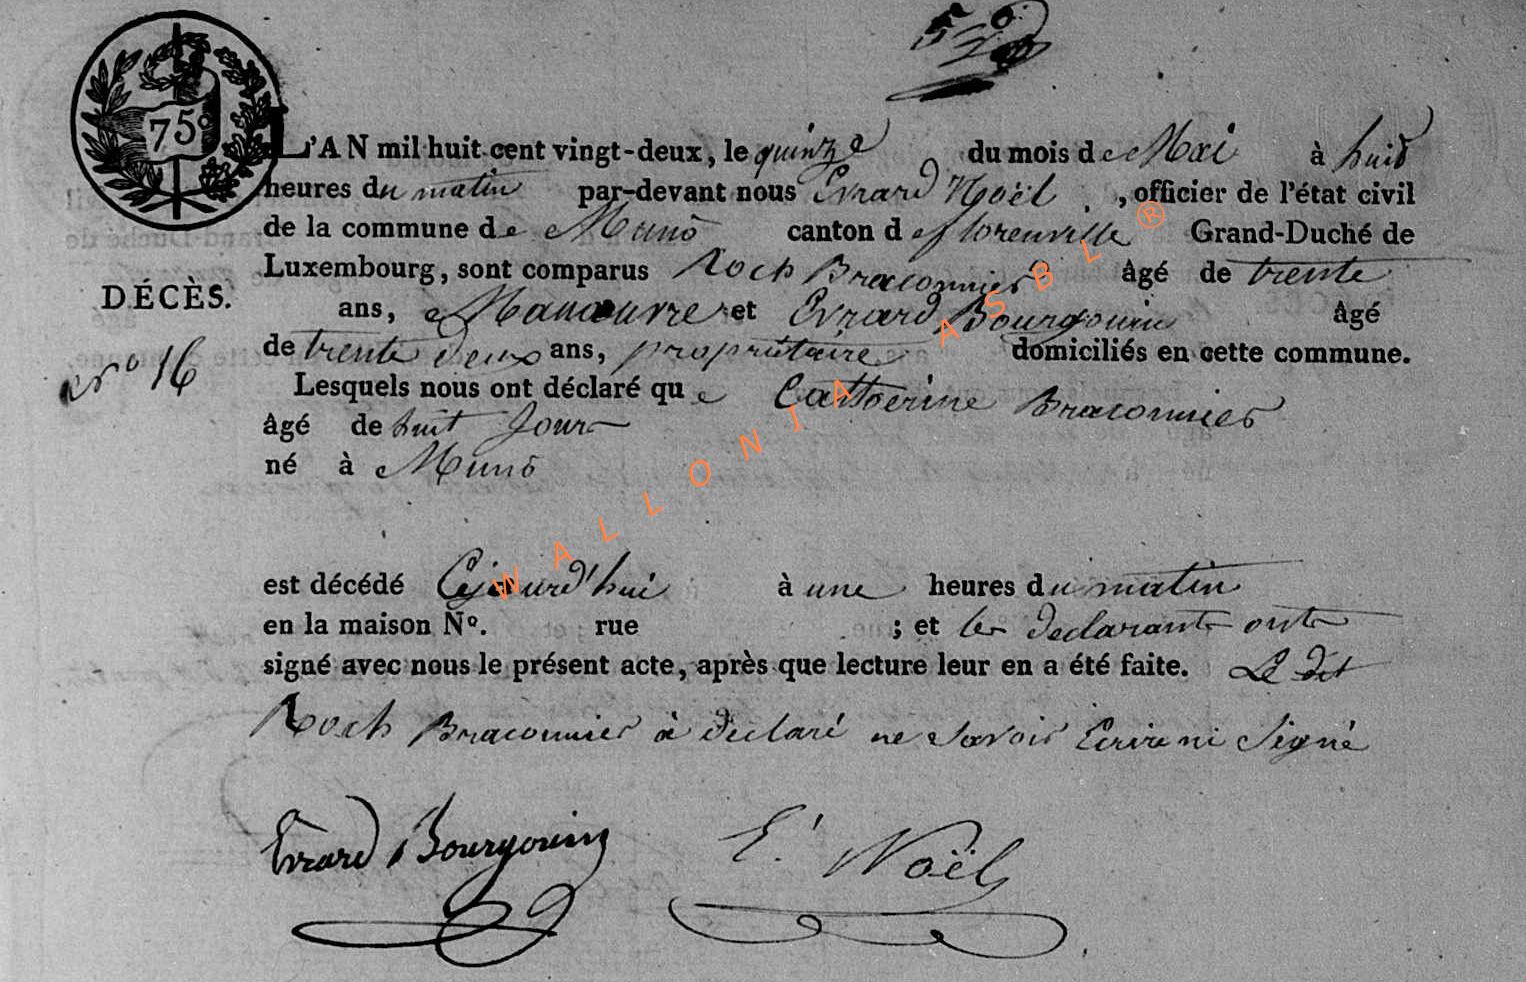 75c
L'AN mil huit cent vingt-deux, le quinze du mois de Mai à huit
heures du matin par-devant nous Evrard Noël, officier de l'état civil
de la commune de Muno canton de florenville Grand-Duché de
Luxembourg, sont comparus Roch Braconnier âgé de trente
DÉCÈS.
ans, Manoeuvre et Evrard Bourgouin âgé
de trente deux ans, propriétaire domiciliés en cette commune.
nº 16
Lesquels nous ont déclaré que Catherine Braconnier
âgé de huit Jour
né à Muno
est décédé Cejourd'hui à une heures du matin
en la maison Nº. rue ; et les declarants ont
signé avec nous le présent acte, après que lecture leur en a été faite. Le dit
Roch Braconnier à declaré ne savoir Ecrire ni Signé
Evrard Bourgouin E. Noël
WALLONIA ASBL ®